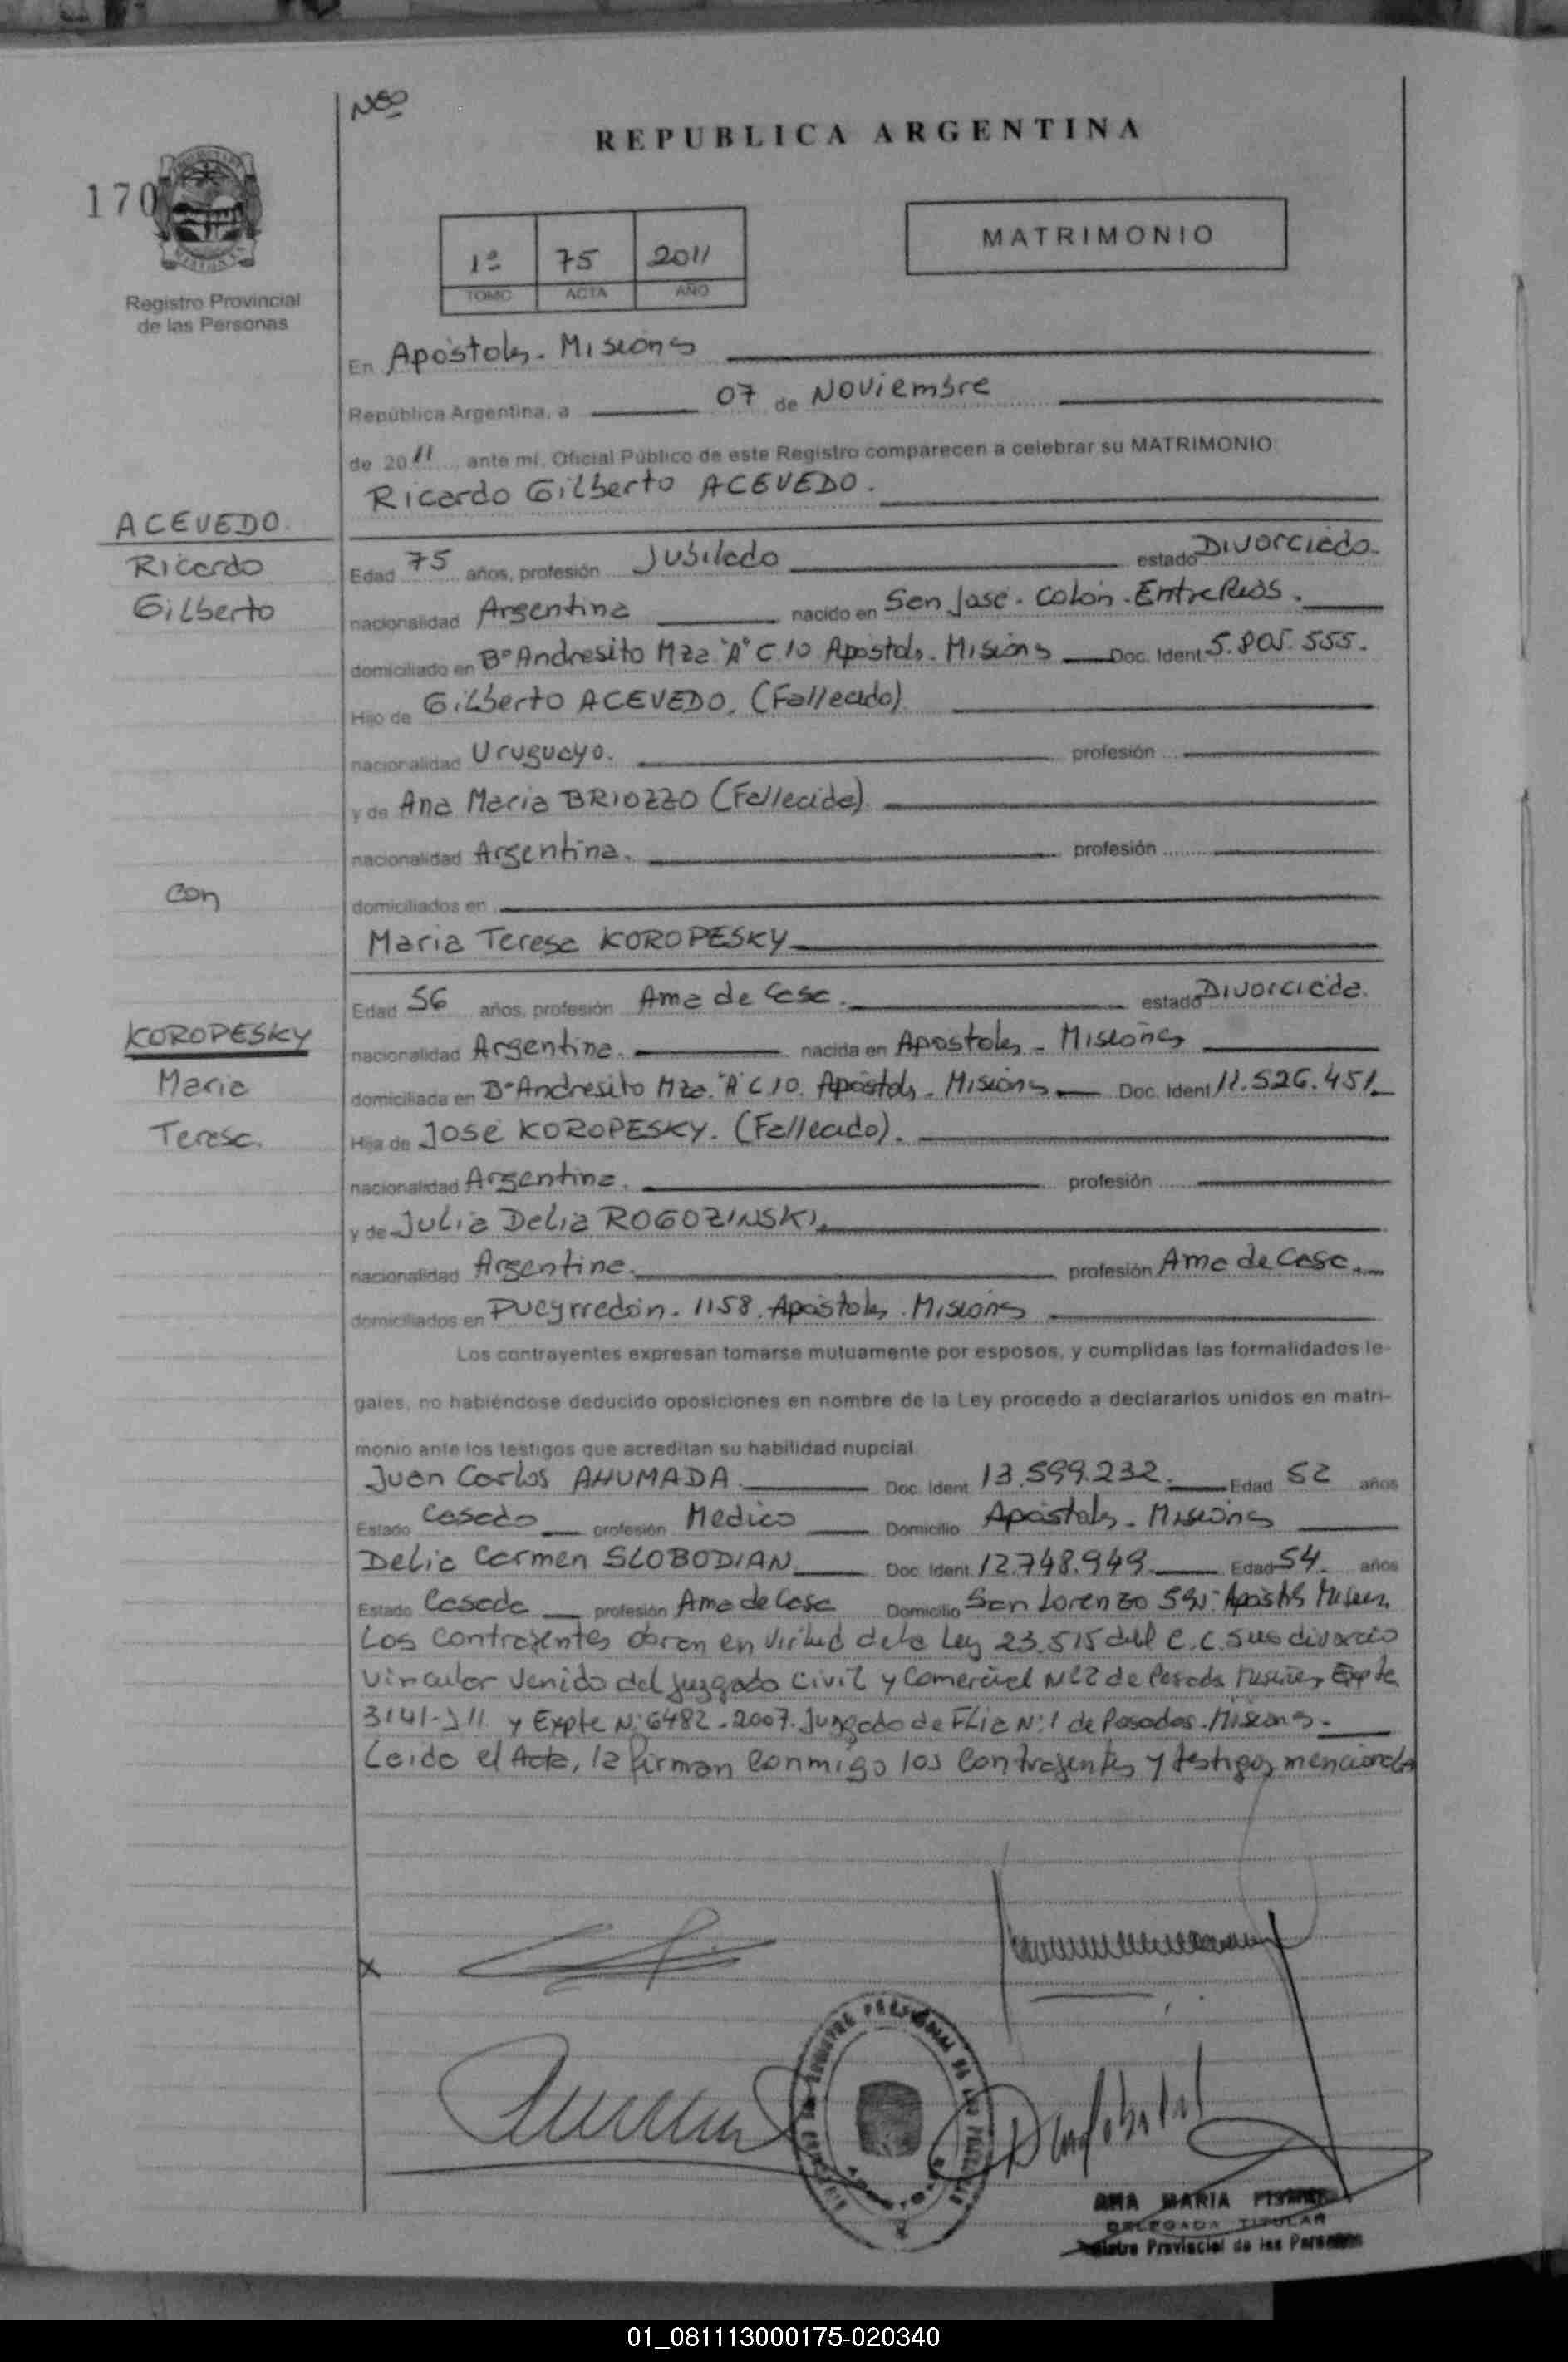 REPUBLICA ARGENTINA
170
Registro Provincial
de las Personas
1º 75 2011
TOMO ACTA AÑO
MATRIMONIO
En Apóstoles - Misiones
República Argentina, a 07 de Noviembre
de 2011 ante mí, Oficial Público de este Registro comparecen a celebrar su MATRIMONIO:
Ricardo Gilberto ACEVEDO.
ACEVEDO.
Ricardo
Gilberto
Edad 75 años, profesión Jubilado estado Divorciado.
nacionalidad Argentina nacido en San José - Colón - Entre Ríos.
domiciliado en Bº Andresito Mza "A" C 10 Apóstoles - Misiones Doc. Ident. 5.805.555.
Hijo de Gilberto ACEVEDO, (Fallecido)
nacionalidad Uruguayo. profesión
y de Ana Maria BRIOZZO (Fallecida).
nacionalidad Argentina. profesión
con
domiciliados en
Maria Teresa KOROPESKY
Edad 56 años, profesión Ama de Casa. estado Divorciada.
KOROPESKY
Maria
Teresa.
nacionalidad Argentina. nacida en Apóstoles - Misiones
domiciliada en Bº Andresito Mza. "A" C 10. Apóstoles - Misiones Doc. Ident 11.526.451.
Hija de José KOROPESKY. (Fallecido).
nacionalidad Argentina. profesión
y de Julia Delia ROGOZINSKI.
nacionalidad Argentina. profesión Ama de Casa.
domiciliados en Pueyrredón - 1158. Apóstoles - Misiones
Los contrayentes expresan tomarse mutuamente por esposos, y cumplidas las formalidades le-
gales, no habiéndose deducido oposiciones en nombre de la Ley procedo a declararlos unidos en matri-
monio ante los testigos que acreditan su habilidad nupcial.
Juan Carlos AHUMADA. Doc. Ident. 13.599.232. Edad 52 años
Estado Casado profesión Medico Domicilio Apóstoles - Misiones
Delia Carmen SLOBODIAN Doc. Ident. 12.748.949. Edad 54. años
Estado Casada profesión Ama de Casa Domicilio San Lorenzo
Los contrayentes obran en virtud de la Ley 23.515 del C.C. sus divorcio
vincular venido del Juzgado Civil y Comercial Nº 2 de Posadas Misiones, Expte
3141-J 11 y Expte Nº 6482-2007. Juzgado de Flia Nº 1 de Posadas - Misiones.
Leido el Acta, la firman conmigo los contrayentes y testigos mencionados
ANA MARIA
DELEGADA TITULAR
Provincial de las Personas
01_081113000175-020340